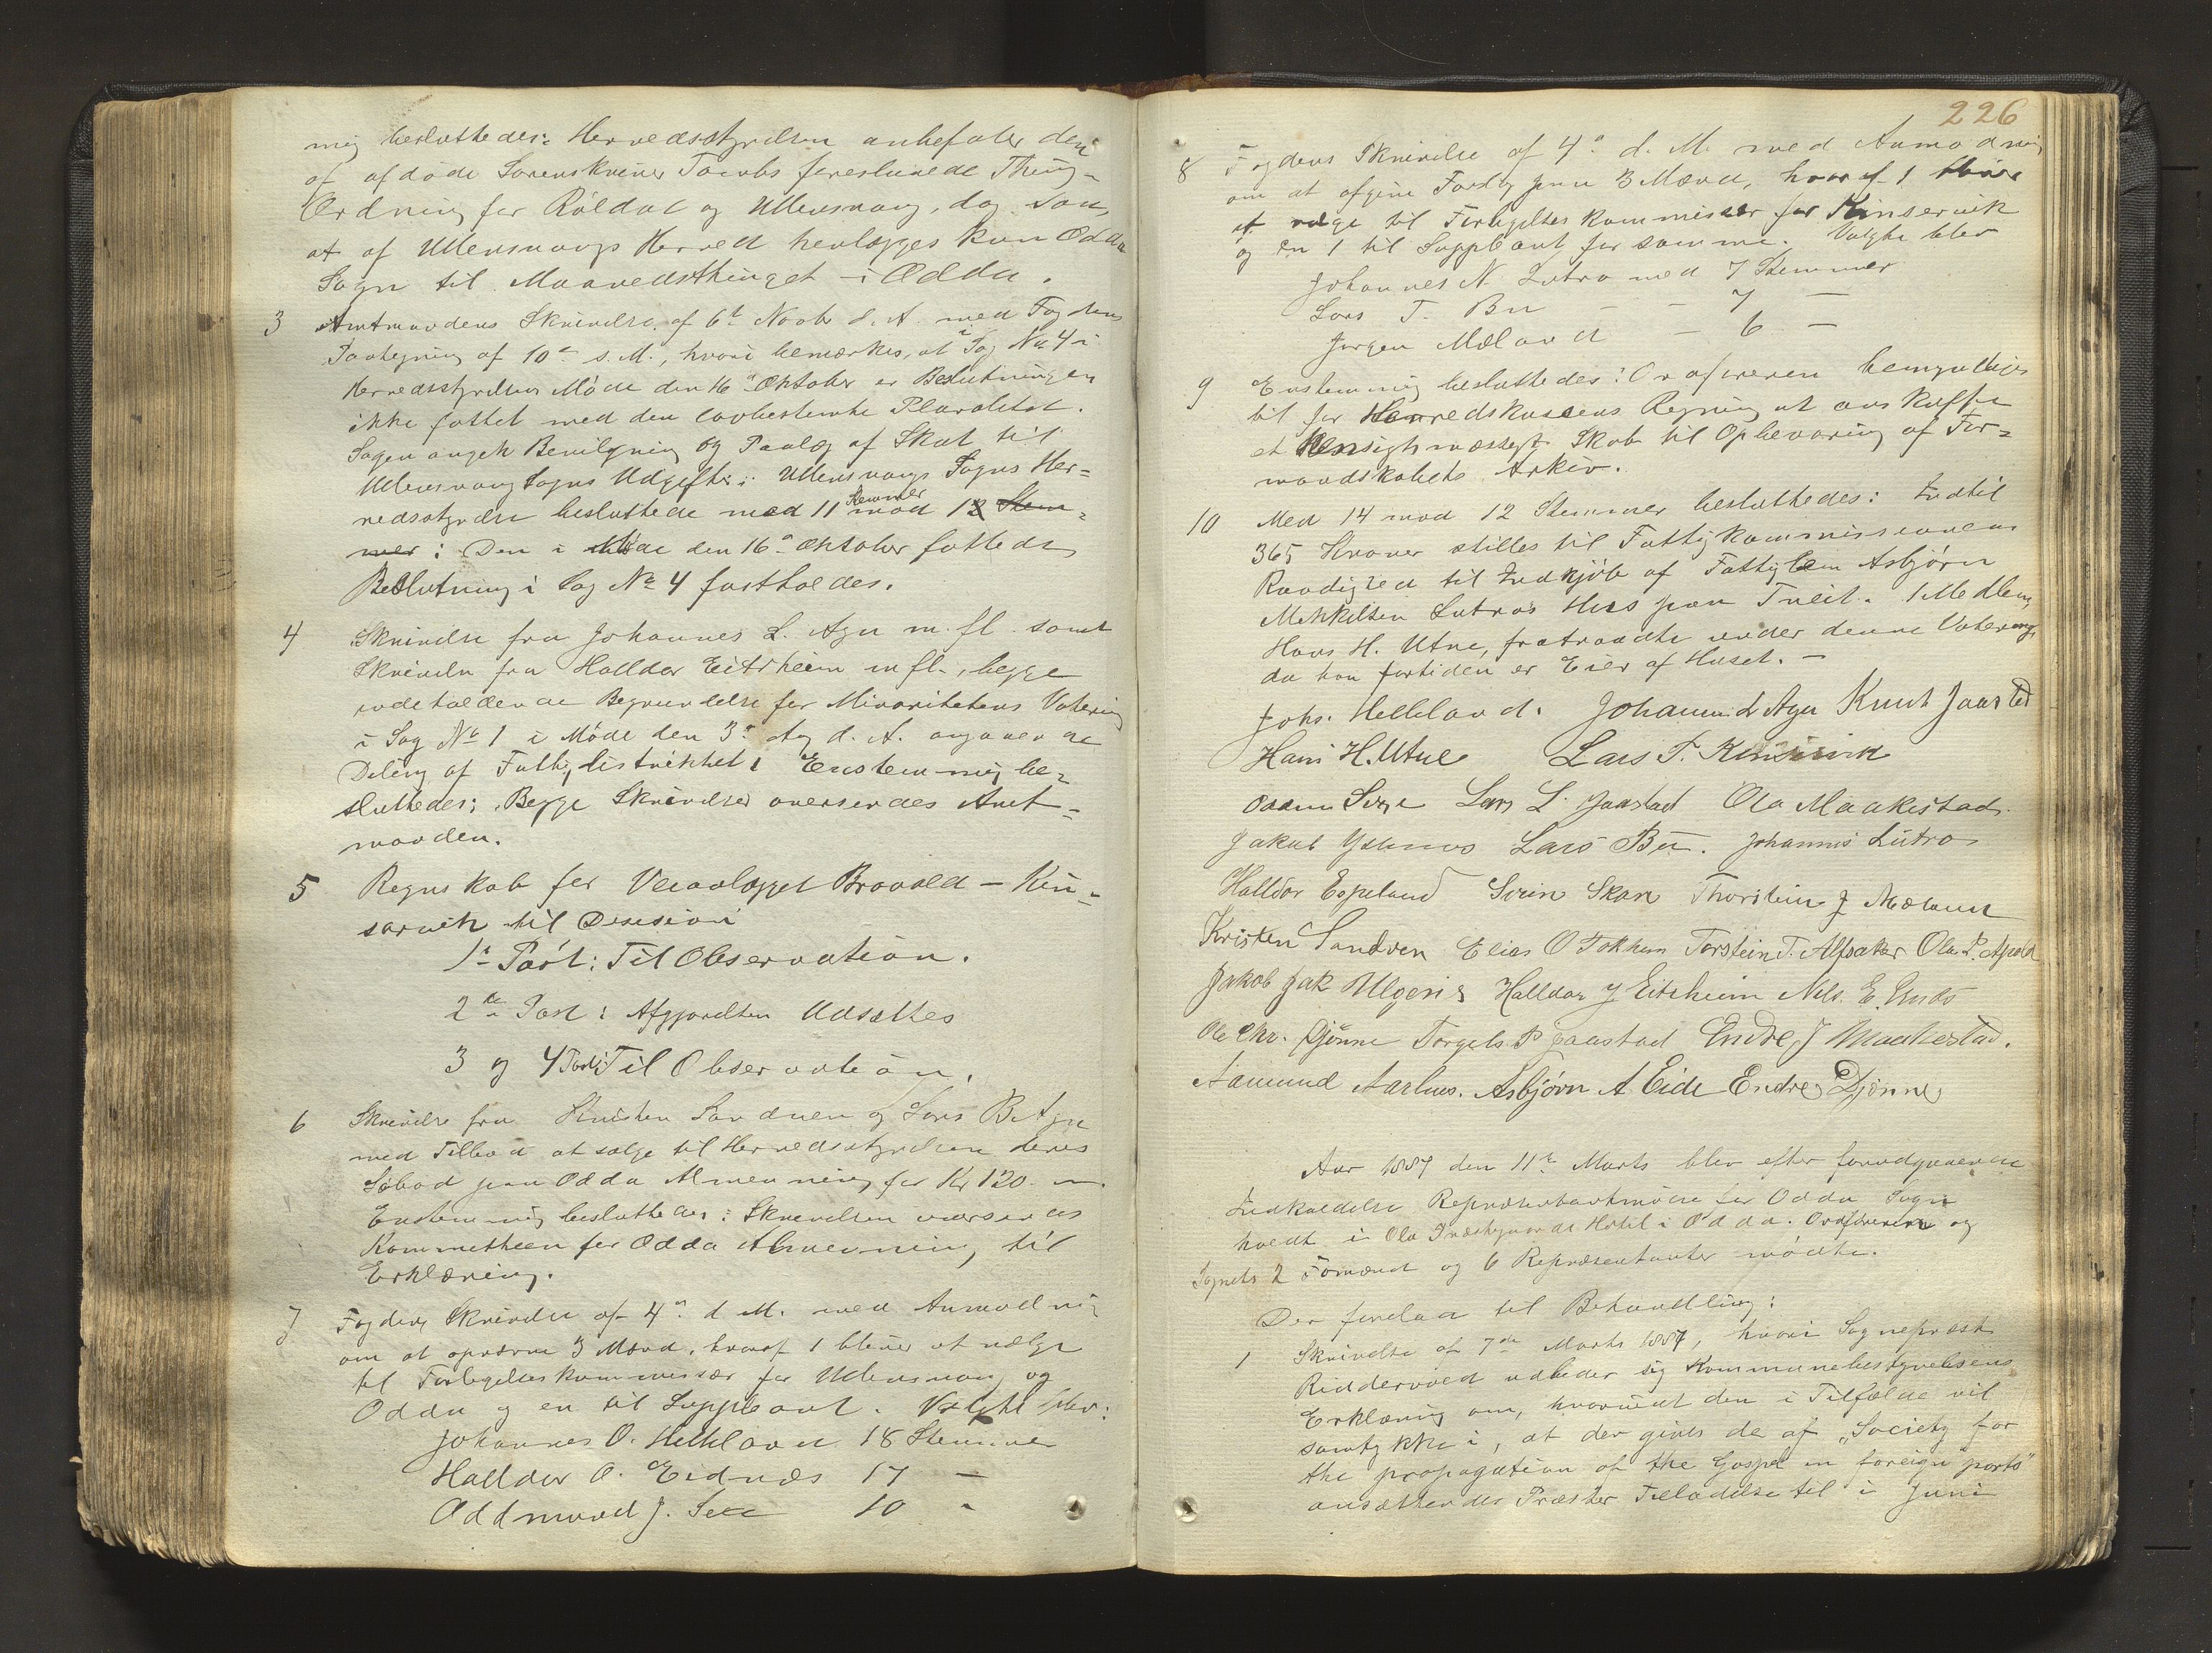 mig besluttedes: Herredsstyrelsen anbefaler den
af afdøde Sorenskriver Jacobs foreslaaede Thing-
Ordning for Röldal og Ullensvang, dog saa,
at af Ullensvangs Herred henlægges kun Odda
Sogn til Maanedsthinget i Odda.
3 Amtmandens Skrivelse af 6te Novbr d. A. med Fogdens
Paategning af 10de s. M., hvori bemærkes, at i Sag No 4 i
Herredsstyrelsens Möde den 16de Oktober er Beslutningen
ikke fattet med den lovbestemte Pluralitet.
Sagen angik Bevilgning og Paalæg af Skat til
Ullensvang Sogns Udgifter: Ullensvangs Sogns Her=
redsstyrelse besluttede med 11 Stemmer mod 1 Stem=
mer: Den i Möde den 16de Oktober fattede
Beslutning i Sag No 4 fastholdes.
4 Skrivelse fra Johannes L. Aga m. fl. samt
Skrivelse fra Halldor Eitrheim m fl., begge
indeholdende Begrundelse for Minoritetens Votering
i Sag No 1 i Möde den 3de Aug d. A. angaaende
Deling af Fattigdistriktet. Enstemmig be=
sluttedes: Begge Skrivelser oversendes Amt=
manden.
5 Regnskab for Veianlægget Bravold - Kin=
sarvik til Desision
1te Post: Til Observation.
2den Post: Afgjorelsen Udsættes
3 og 4 Post: Til Observation.
6 Skrivelse fra Kristen Sandven og Lars B. Aga
med Tilbud at sælge til Herredsstyrelsen deres
Söbod paa Odda Almenning for Kr 120.
Enstemmig besluttedes: Skrivelsen oversendes
Kommetheen for Odda Almenning til
Erklæring.
7 Fogdens Skrivelse af 4de d. M. med Anmodning
om at opnævne 3 Mænd, hvoraf 1 bliver at vælge
til Forligelseskommissær for Ullensvang og
Odda og en til Suppleant. Valgte blev:
Johannes O. Helleland 18 Stemmer
Halldor O. Eidnæs 17 -
Oddmund J. Sexe 10 -
226
8 Fogdens Skrivelse af 4de d. M. med Anmodning
om at afgive Forslag paa 3 Mænd, hvoraf 1 bliver
at vælge til Forligelseskommissær for Kinservik
og en 1 til Suppleant for samme. Valgte blev
Johannes N. Lutro med 7 Stemmer
Lars T. Bu - - 7 -
Jørgen Mæland - 6 -
9 Enstemmig besluttedes: Ordføreren bemyndiges
til for Herredskassens Regning at anskaffe
et Hensigtsmæssigt Skab til Opbevaring af For=
mandskabets Arkiv.
10 Med 14 mod 12 Stemmer besluttedes: Indtil
365 Kroner stilles til Fattigkommissionens
Raadighed til Indkjöb af Fattiglem Asbjörn
Mikkelsen Lutro's Hus paa Tveit. 1 Medlem,
Hans H. Utne, fratraadte under denne Votering,
da han fortiden er Eier af Huset. -
Johs. Helleland. Johannes L Aga Knut Jaastad
Hans H. Utne Lars T. Kinsarvik
Odmun Sexe Lars L. Jaastad Ola Maakestad.
Jakob Lars Bu. Johannes Lutro
Halldor Espeland Svein Skare Thorstein J Mæland
Kristen Sandven Elias O Tokheim Torstein T. Alsaker Ola P. Apold
Jakob Jak Ulgenes Halldor J Eitrheim Nils E.
Ole Chr. Djönne Torgils P Jaastad Endre J Maakestad.
Aamund Aarhus. Asbjörn A. Eide Endre Djönne
Aar 1887 den 11te Marts blev efter forudgaaende
Indkaldelse Repræsentantmöde for Odda Sogn
holdt i Ola Præstegaards Hotel i Odda. Ordföreren og
Sognets 2 Formænd og 6 Repræsentanter mödte.
Der forelaa til Behandling:
1 Skrivelse af 7de Marts 1887, hvori Sognepræst
Riddervold udbeder sig Kommunebestyrelsens
Erklæring om, hvorvidt den i Tilfælde vil
samtykke i, at der gives de af „Society for
the propagation of the Gospel in foreign parts"
ansættende Præster Tilladelse til i Juni